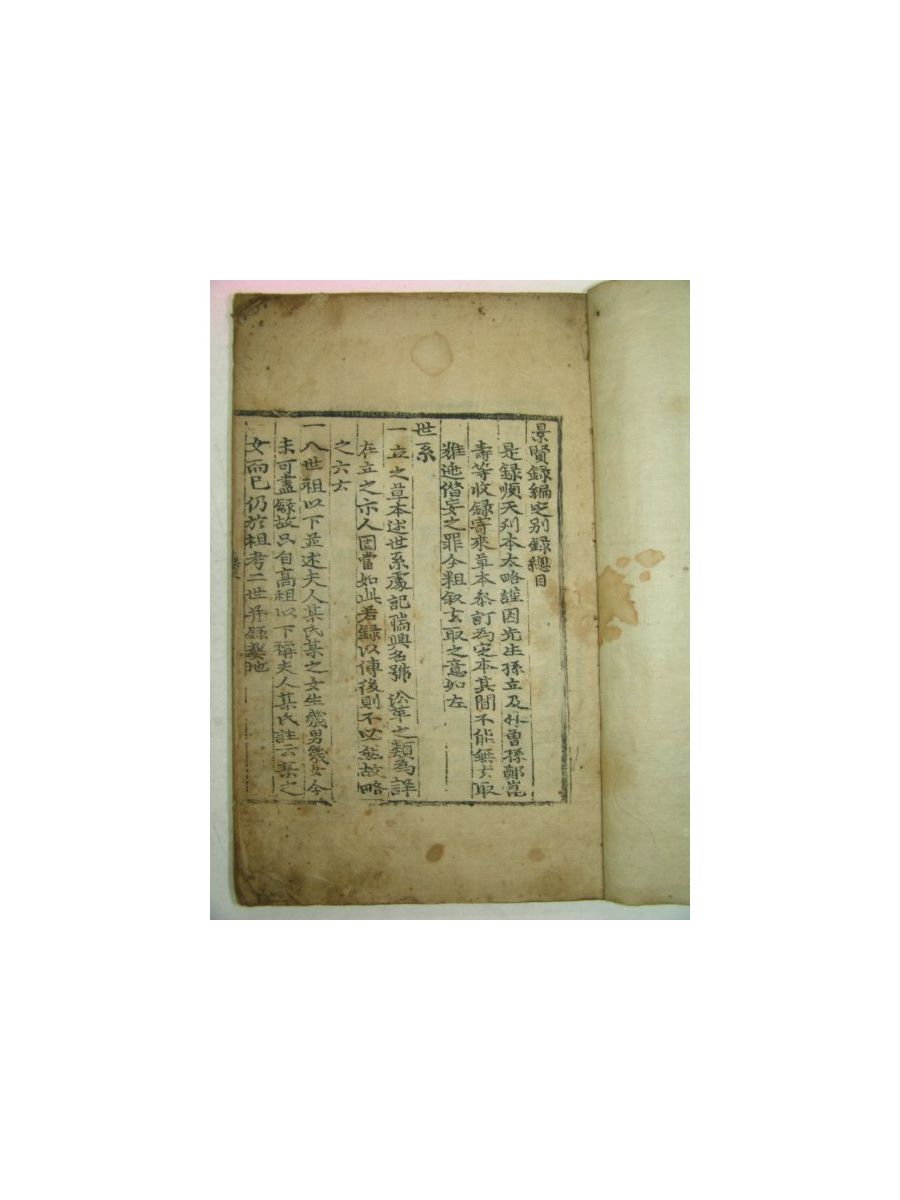 景賢録編定別錄總目
是録順天刋本太略謹因先生孫立及外曾孫鄭崑
壽等收録寄來草本叅訂為定本其間不能無去取
難逃僣妄之罪今粗叙去取之意如左
世系
一立之草本述世系處記瑞興名號沿革之類為詳
在立之示人固當如此若録以傳後則不必然故略
之六去
一八世祖以下並述夫人某氏某之女生幾男幾女今
未可盡録故只自高祖以下稱夫人某氏註云某之
女而已仍於祖考二世并録葬地